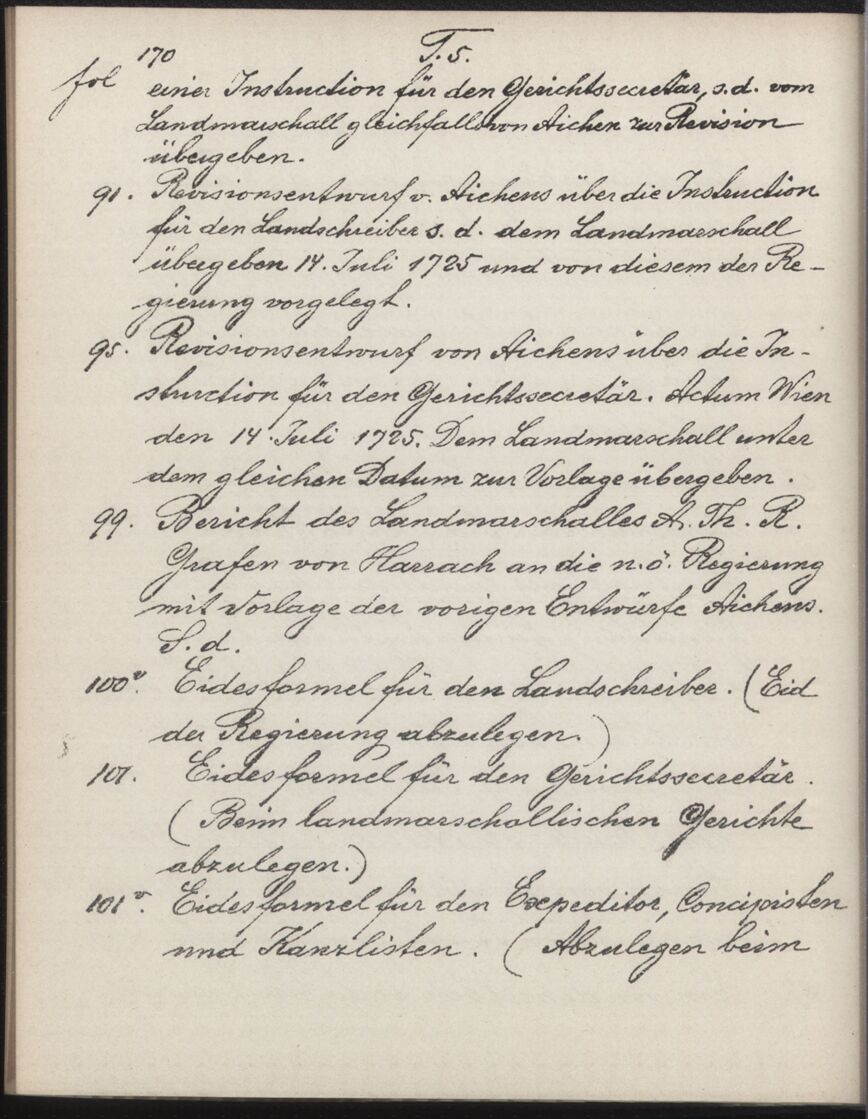 170 T. 5.
fol einer Instruction für den Gerichtssecretär, s.d. vom
Landmarschall gleichfalls von Aichen zur Revision
übergeben.
91. Revisionsentwurf v. Aichens über die Instruction
für den Landschreiber s. d. dem Landmarschall
übergeben 14. Juli 1725 und von diesem der Re-
gierung vorgelegt.
95. Revisionsentwurf von Aichens über die In-
struction für den Gerichtssecretär. Actum Wien
den 14. Juli 1725. Dem Landmarschall unter
dem gleichen Datum zur Vorlage übergeben.
99. Bericht des Landmarschalles A. Th. R.
Grafen von Harrach an die n.ö. Regierung
mit Vorlage der vorigen Entwürfe Aichens.
S. d.
100v. Eidesformel für den Landschreiber. (Eid
der Regierung abzulegen.)
101. Eidesformel für den Gerichtssecretär.
(Beim landmarschallischen Gerichte
abzulegen.)
101v. Eidesformel für den Expeditor, Concipisten
und Kanzlisten. (Abzulegen beim